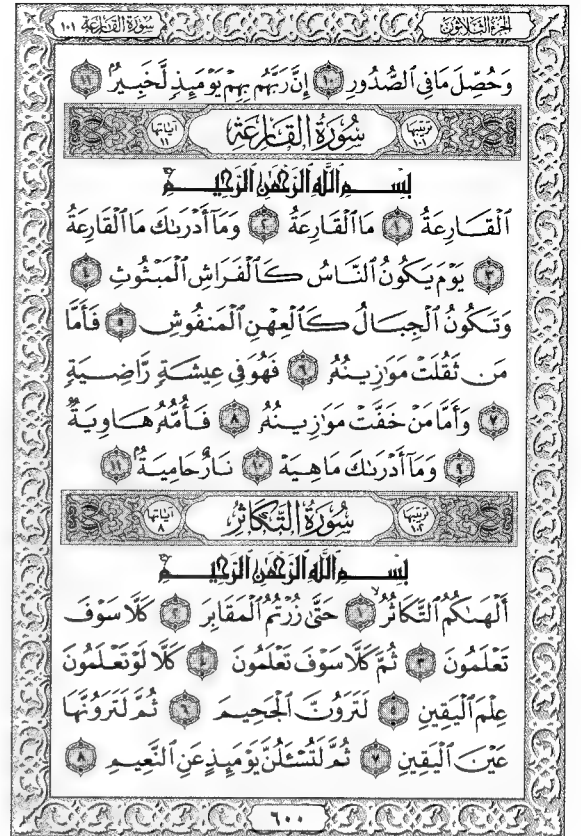 الجزء الثلاثون سورة القارعة ١٠١
وَحُصِّلَ مَا فِي ٱلصُّدُورِ ١٠ إِنَّ رَبَّهُم بِهِمْ يَوْمَئِذٍ لَّخَبِيرٌۢ ١١
ترتيبها ١٠١ سُورَةُ القَارِعَةِ آياتها ١١
بِسْمِ ٱللَّهِ ٱلرَّحْمَٰنِ ٱلرَّحِيمِ
ٱلْقَارِعَةُ ١ مَا ٱلْقَارِعَةُ ٢ وَمَآ أَدْرَىٰكَ مَا ٱلْقَارِعَةُ
٣ يَوْمَ يَكُونُ ٱلنَّاسُ كَٱلْفَرَاشِ ٱلْمَبْثُوثِ ٤
وَتَكُونُ ٱلْجِبَالُ كَٱلْعِهْنِ ٱلْمَنفُوشِ ٥ فَأَمَّا
مَن ثَقُلَتْ مَوَٰزِينُهُۥ ٦ فَهُوَ فِي عِيشَةٍ رَّاضِيَةٍ
٧ وَأَمَّا مَنْ خَفَّتْ مَوَٰزِينُهُۥ ٨ فَأُمُّهُۥ هَاوِيَةٌ
٩ وَمَآ أَدْرَىٰكَ مَا هِيَهْ ١٠ نَارٌ حَامِيَةٌۢ ١١
ترتيبها ١٠٢ سُورَةُ التَّكَاثُرِ آياتها ٨
بِسْمِ ٱللَّهِ ٱلرَّحْمَٰنِ ٱلرَّحِيمِ
أَلْهَىٰكُمُ ٱلتَّكَاثُرُ ١ حَتَّىٰ زُرْتُمُ ٱلْمَقَابِرَ ٢ كَلَّا سَوْفَ
تَعْلَمُونَ ٣ ثُمَّ كَلَّا سَوْفَ تَعْلَمُونَ ٤ كَلَّا لَوْ تَعْلَمُونَ
عِلْمَ ٱلْيَقِينِ ٥ لَتَرَوُنَّ ٱلْجَحِيمَ ٦ ثُمَّ لَتَرَوُنَّهَا
عَيْنَ ٱلْيَقِينِ ٧ ثُمَّ لَتُسْـَٔلُنَّ يَوْمَئِذٍ عَنِ ٱلنَّعِيمِ ٨
٦٠٠